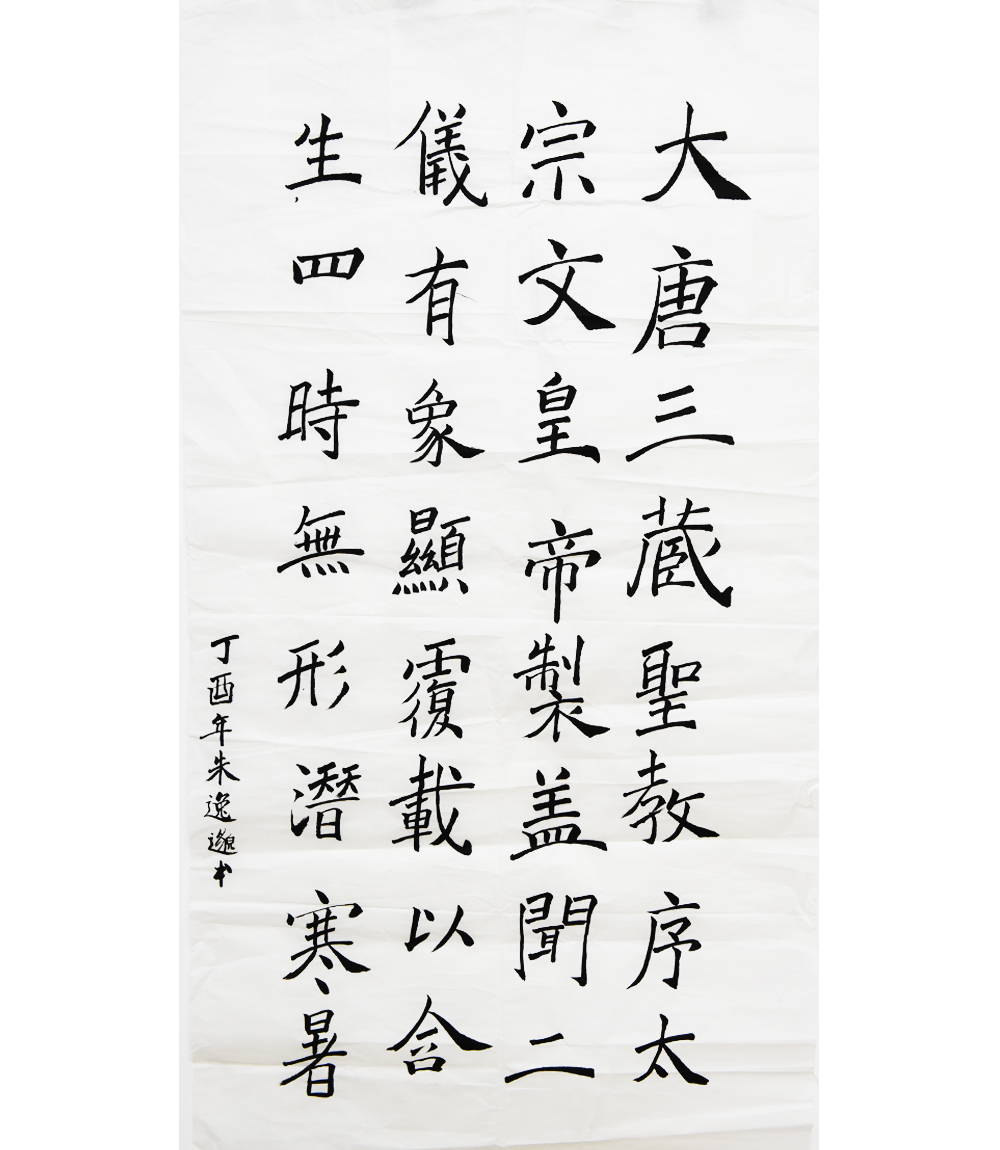 大唐三蔵聖教序太
宗文皇帝製盖聞二
儀有象顯覆載以含
生四時無形潛寒暑
丁酉年朱逸邈书